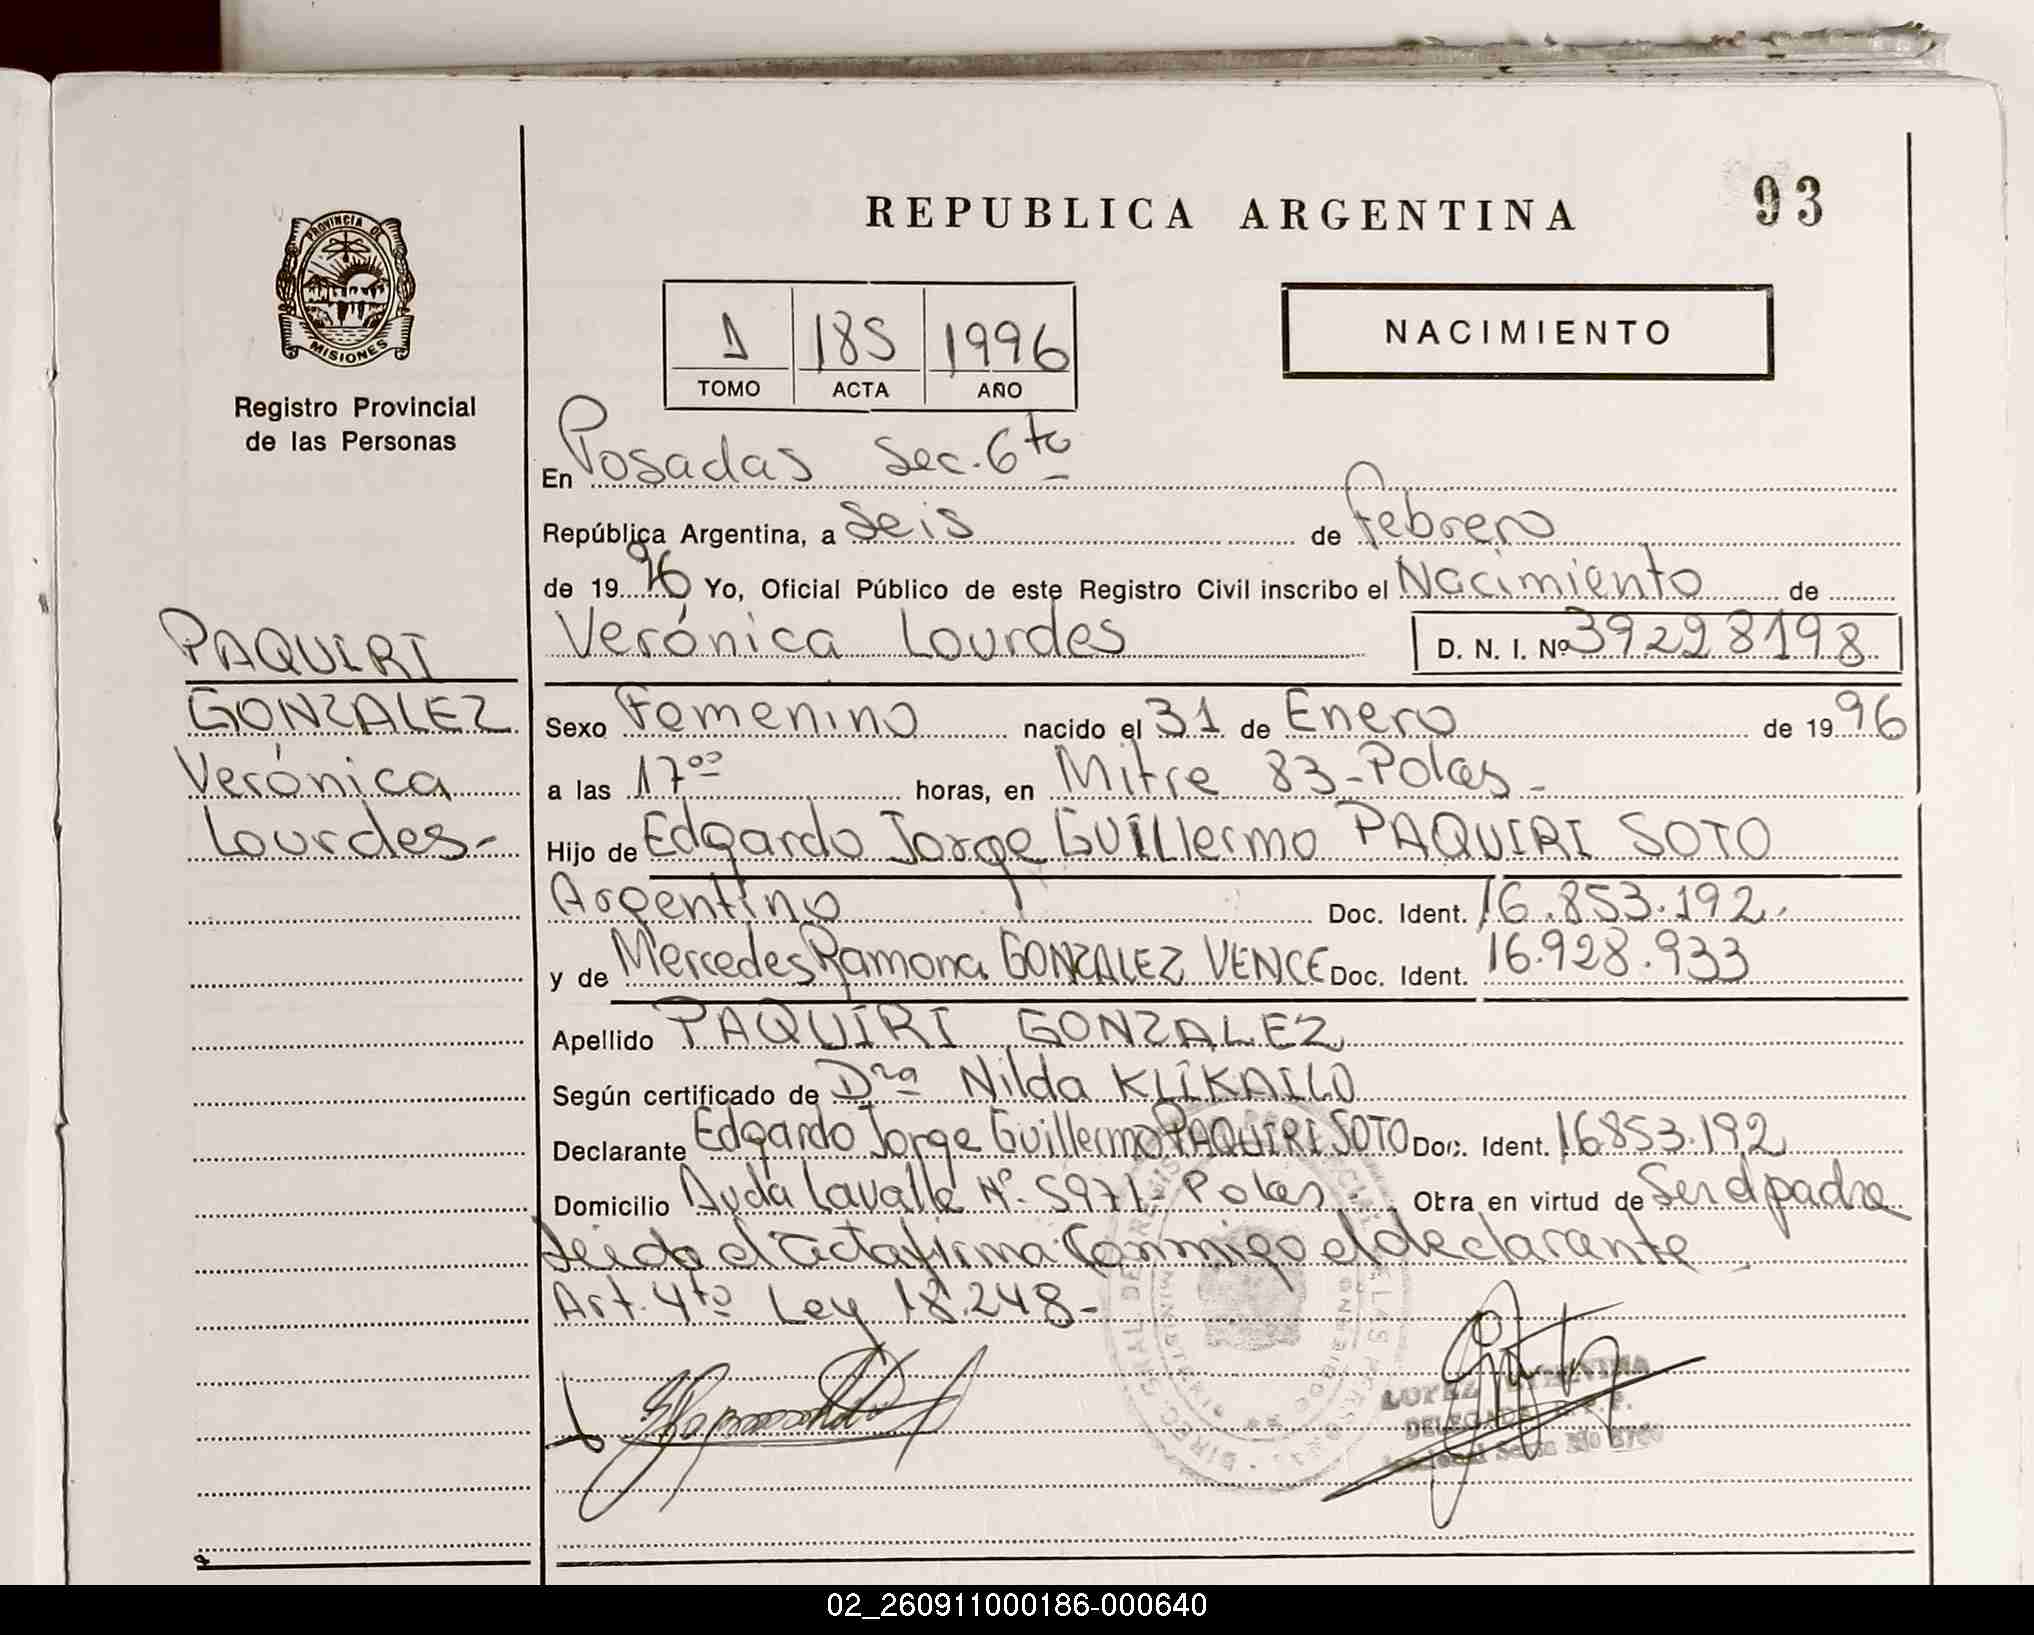 93
REPUBLICA ARGENTINA
PROVINCIA DE
MISIONES
Registro Provincial
de las Personas
1 185 1996
TOMO ACTA AÑO
NACIMIENTO
En Posadas Sec. 6to
República Argentina, a Seis de Febrero
de 1996 Yo, Oficial Público de este Registro Civil inscribo el Nacimiento de
Verónica Lourdes D. N. I. Nº 39228198
PAQUIRI
GONZALEZ
Verónica
Lourdes-
Sexo Femenino nacido el 31 de Enero de 1996
a las 17ºº horas, en Mitre 83-Pdas-
Hijo de Edgardo Jorge Guillermo PAQUIRI SOTO
Argentino Doc. Ident. 16.853.192.
y de Mercedes Ramona GONZALEZ VENCE Doc. Ident. 16.928.933
Apellido PAQUIRI GONZALEZ
Según certificado de Dra Nilda KLIKAILO
Declarante Edgardo Jorge Guillermo PAQUIRI SOTO Doc. Ident. 16853.192
Domicilio Avda Lavalle Nº 5971- Pdas. Obra en virtud de Ser el padre
Leida el acta firma Conmigo el declarante
Art. 4to Ley 18.248-
LOPEZ
DELEGADA
02_260911000186-000640